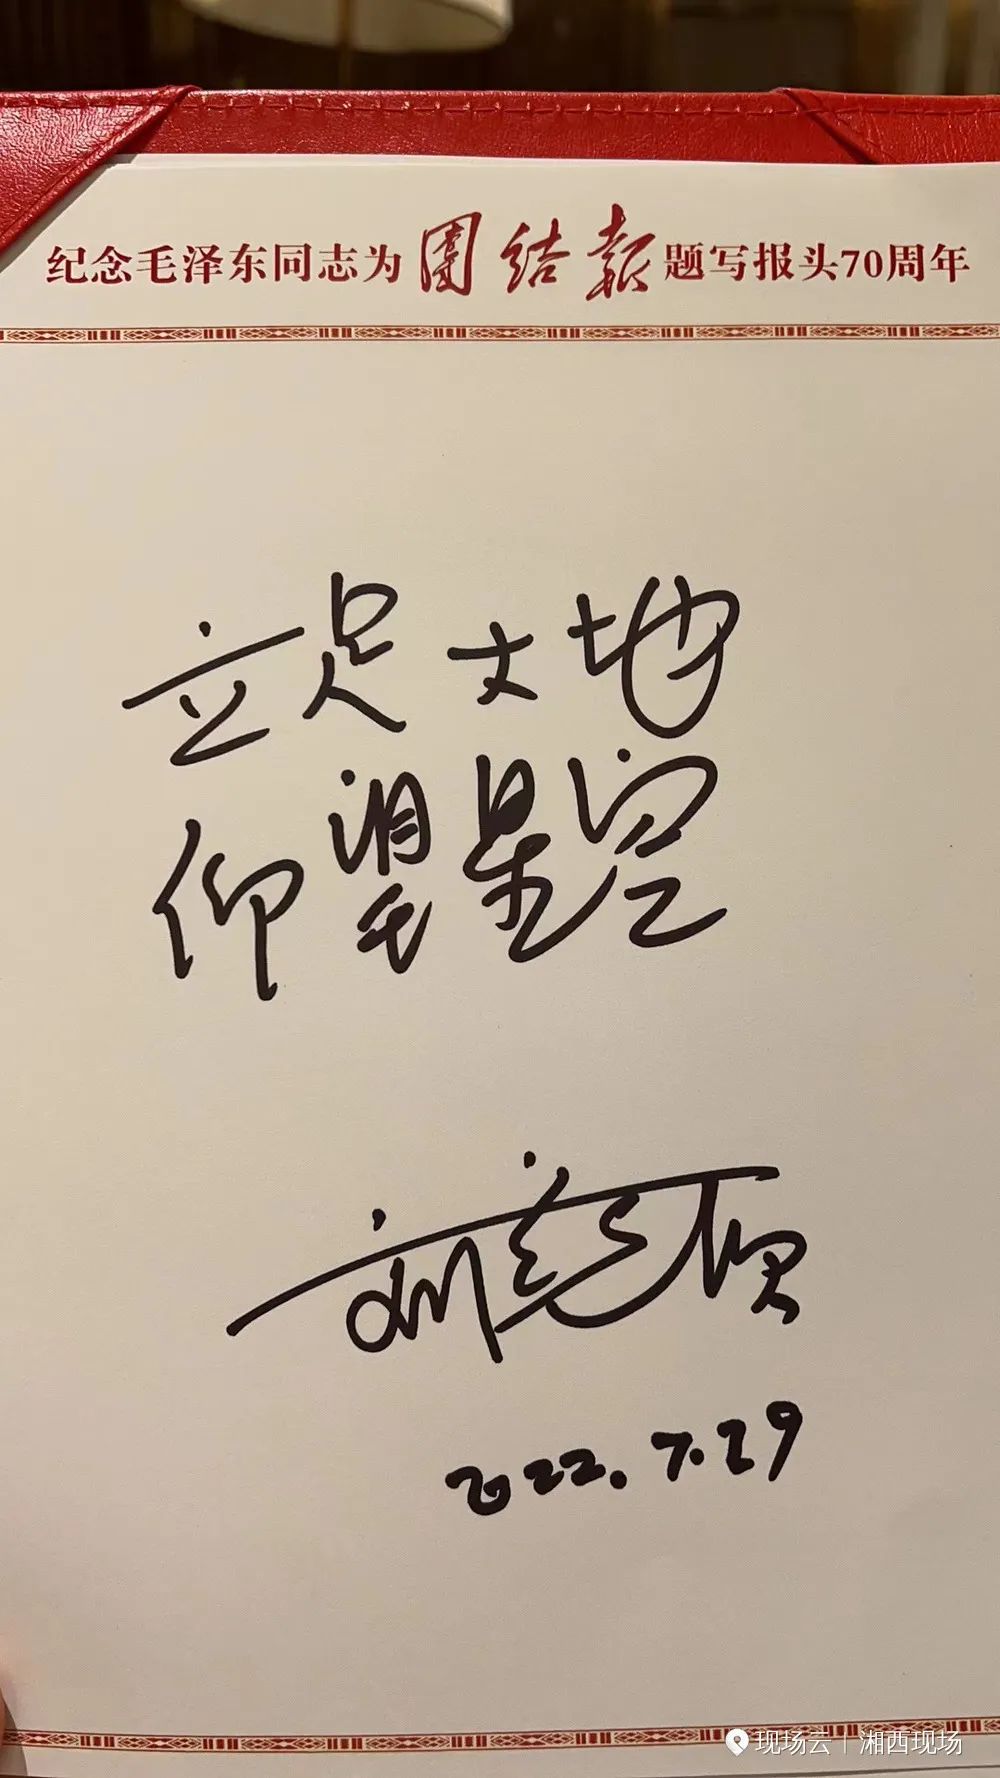 纪念毛泽东同志为團结報题写报头70周年
立足大地
仰望星空
2022.7.29
现场云｜湘西现场